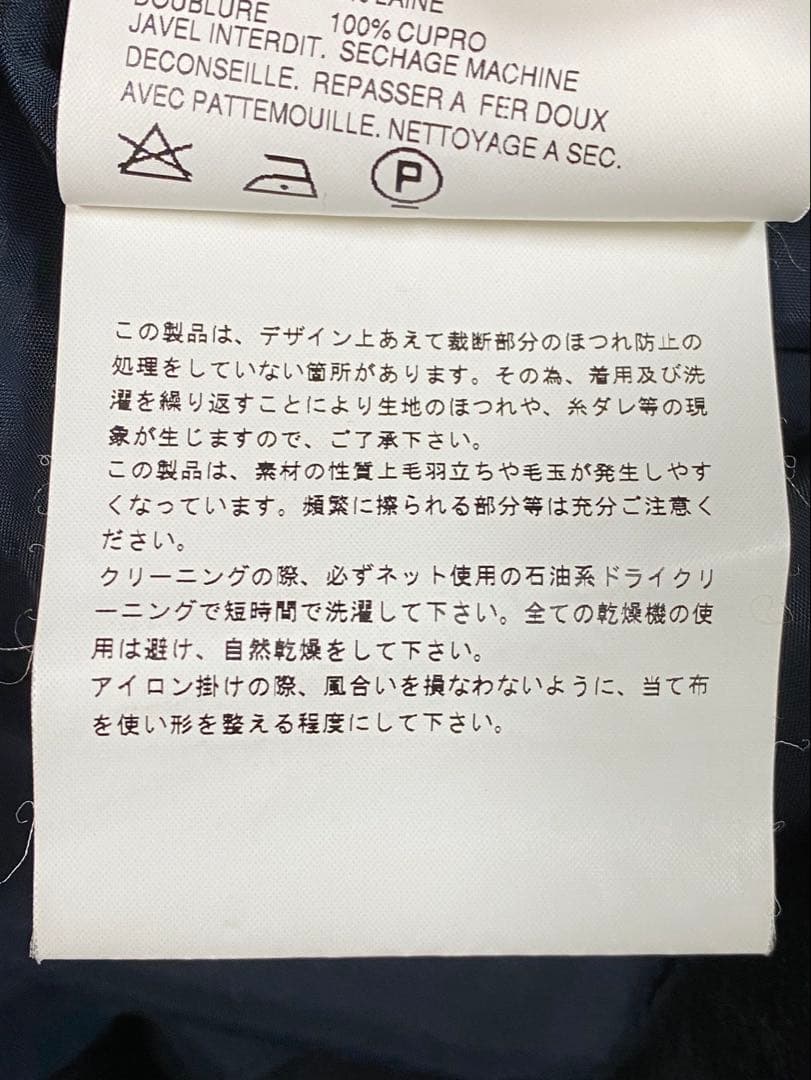 LAINE
DOUBLURE 100% CUPRO
JAVEL INTERDIT. SECHAGE MACHINE
DECONSEILLE. REPASSER A FER DOUX
AVEC PATTEMOUILLE. NETTOYAGE A SEC.
P
この製品は、デザイン上あえて裁断部分のほつれ防止の
処理をしていない箇所があります。その為、着用及び洗
濯を繰り返すことにより生地のほつれや、糸ダレ等の現
象が生じますので、ご了承下さい。
この製品は、素材の性質上毛羽立ちや毛玉が発生しやす
くなっています。頻繁に擦られる部分等は充分ご注意く
ださい。
クリーニングの際、必ずネット使用の石油系ドライクリ
ーニングで短時間で洗濯して下さい。全ての乾燥機の使
用は避け、自然乾燥をして下さい。
アイロン掛けの際、風合いを損なわないように、当て布
を使い形を整える程度にして下さい。